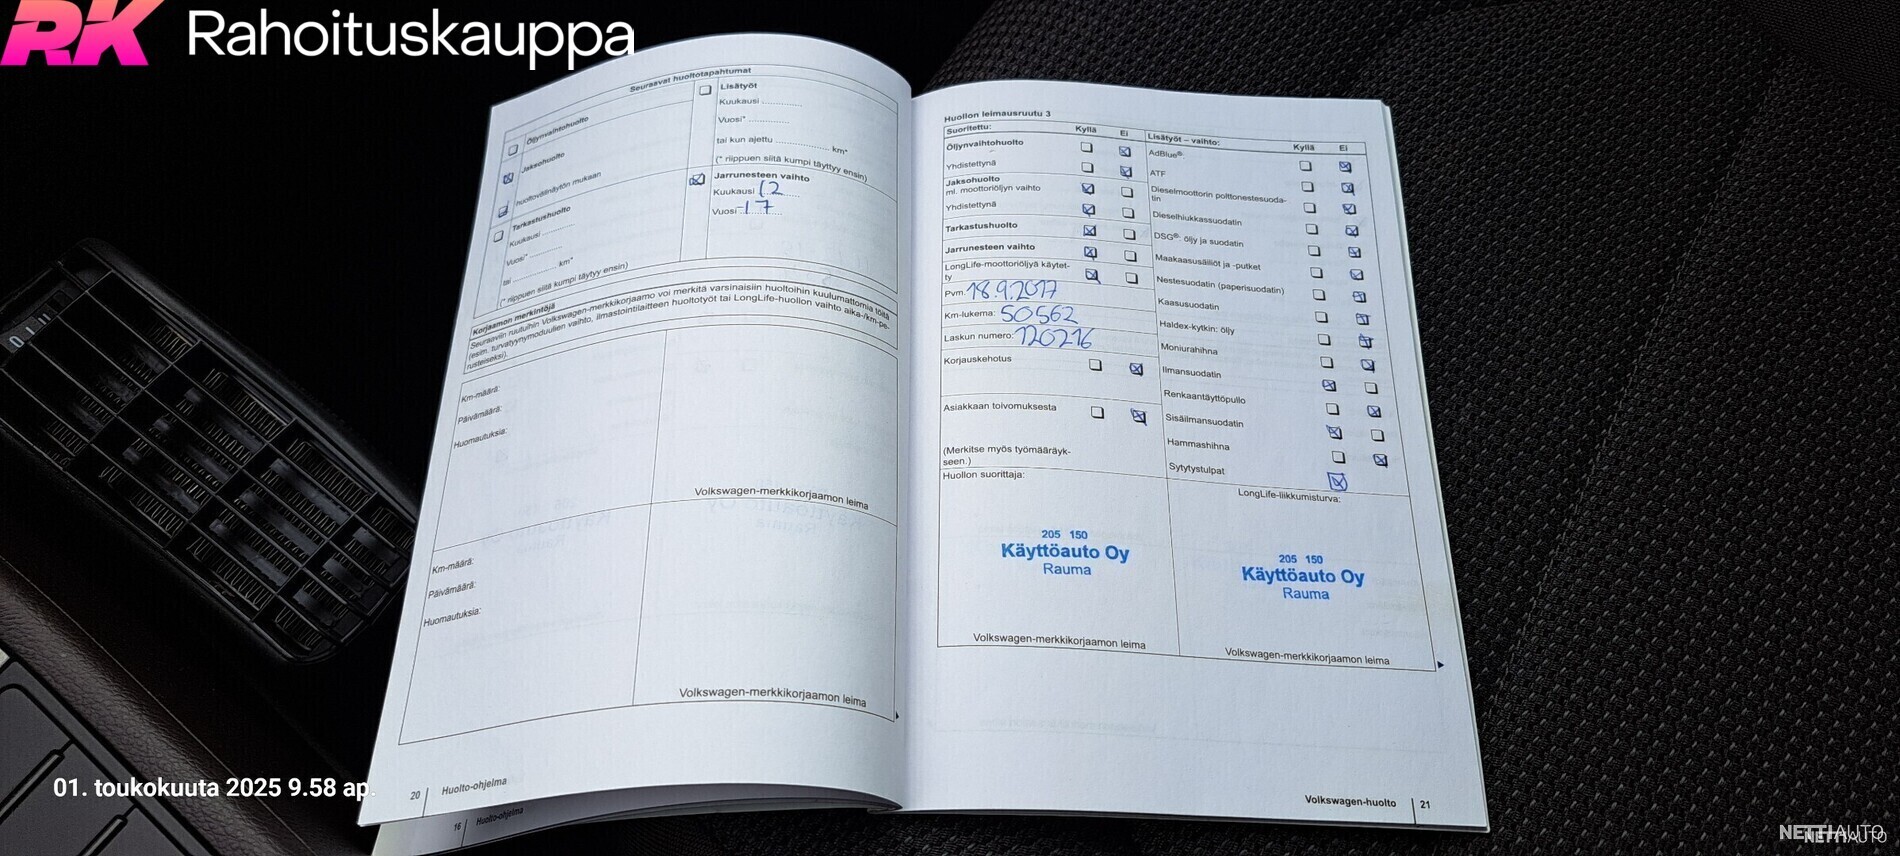 RK Rahoituskauppa
Seuraavat huoltotapahtumat
Öljynvaihtohuolto
Jaksohuolto
huoltovälinäytön mukaan
Tarkastushuolto
Kuukausi ............
Vuosi* ............
tai ............ km*
(* riippuen siitä kumpi täytyy ensin)
Lisätyöt
Kuukausi ............
Vuosi* ............
tai kun ajettu ............ km*
(* riippuen siitä kumpi täyttyy ensin)
Jarrunesteen vaihto
Kuukausi 12
Vuosi -17
Korjaamon merkintöjä
Seuraaviin ruutuihin Volkswagen-merkkikorjaamo voi merkitä varsinaisiin huoltoihin kuulumattomia töitä
(esim. turvatyynymoduulien vaihto, ilmastointilaitteen huoltotyöt tai LongLife-huollon vaihto aika-/km-pe-
rusteiseksi).
Km-määrä:
Päivämäärä:
Huomautuksia:
Volkswagen-merkkikorjaamon leima
Km-määrä:
Päivämäärä:
Huomautuksia:
Volkswagen-merkkikorjaamon leima
20 Huolto-ohjelma
16 Huolto-ohjelma
Huollon leimausruutu 3
Suoritettu: Kyllä Ei
Öljynvaihtohuolto
Yhdistettynä
Jaksohuolto
ml. moottoriöljyn vaihto
Yhdistettynä
Tarkastushuolto
Jarrunesteen vaihto
LongLife-moottoriöljyä käytet-
ty
Pvm. 18.9.2017
Km-lukema: 50562
Laskun numero: 120216
Korjauskehotus
Asiakkaan toivomuksesta
(Merkitse myös työmääräyk-
seen.)
Huollon suorittaja:
205 150
Käyttöauto Oy
Rauma
Volkswagen-merkkikorjaamon leima
Lisätyöt – vaihto: Kyllä Ei
AdBlue®
ATF
Dieselmoottorin polttonestesuoda-
tin
Dieselhiukkassuodatin
DSG®: öljy ja suodatin
Maakaasusäiliöt ja -putket
Nestesuodatin (paperisuodatin)
Kaasusuodatin
Haldex-kytkin: öljy
Moniurahihna
Ilmansuodatin
Renkaantäyttöpullo
Sisäilmansuodatin
Hammashihna
Sytytystulpat
LongLife-liikkumisturva:
205 150
Käyttöauto Oy
Rauma
Volkswagen-merkkikorjaamon leima
Volkswagen-huolto 21
01. toukokuuta 2025 9.58 ap.
NETTIAUTO
NETTIAUTO